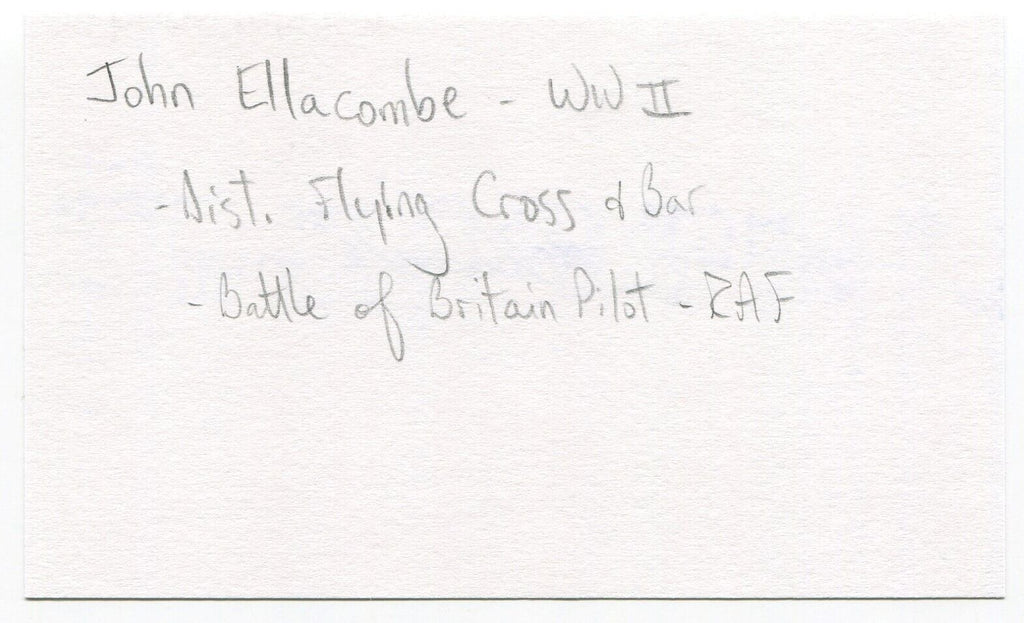 John Ellacombe - WW II
- Dist. Flying Cross & Bar
- Battle of Britain Pilot - RAF